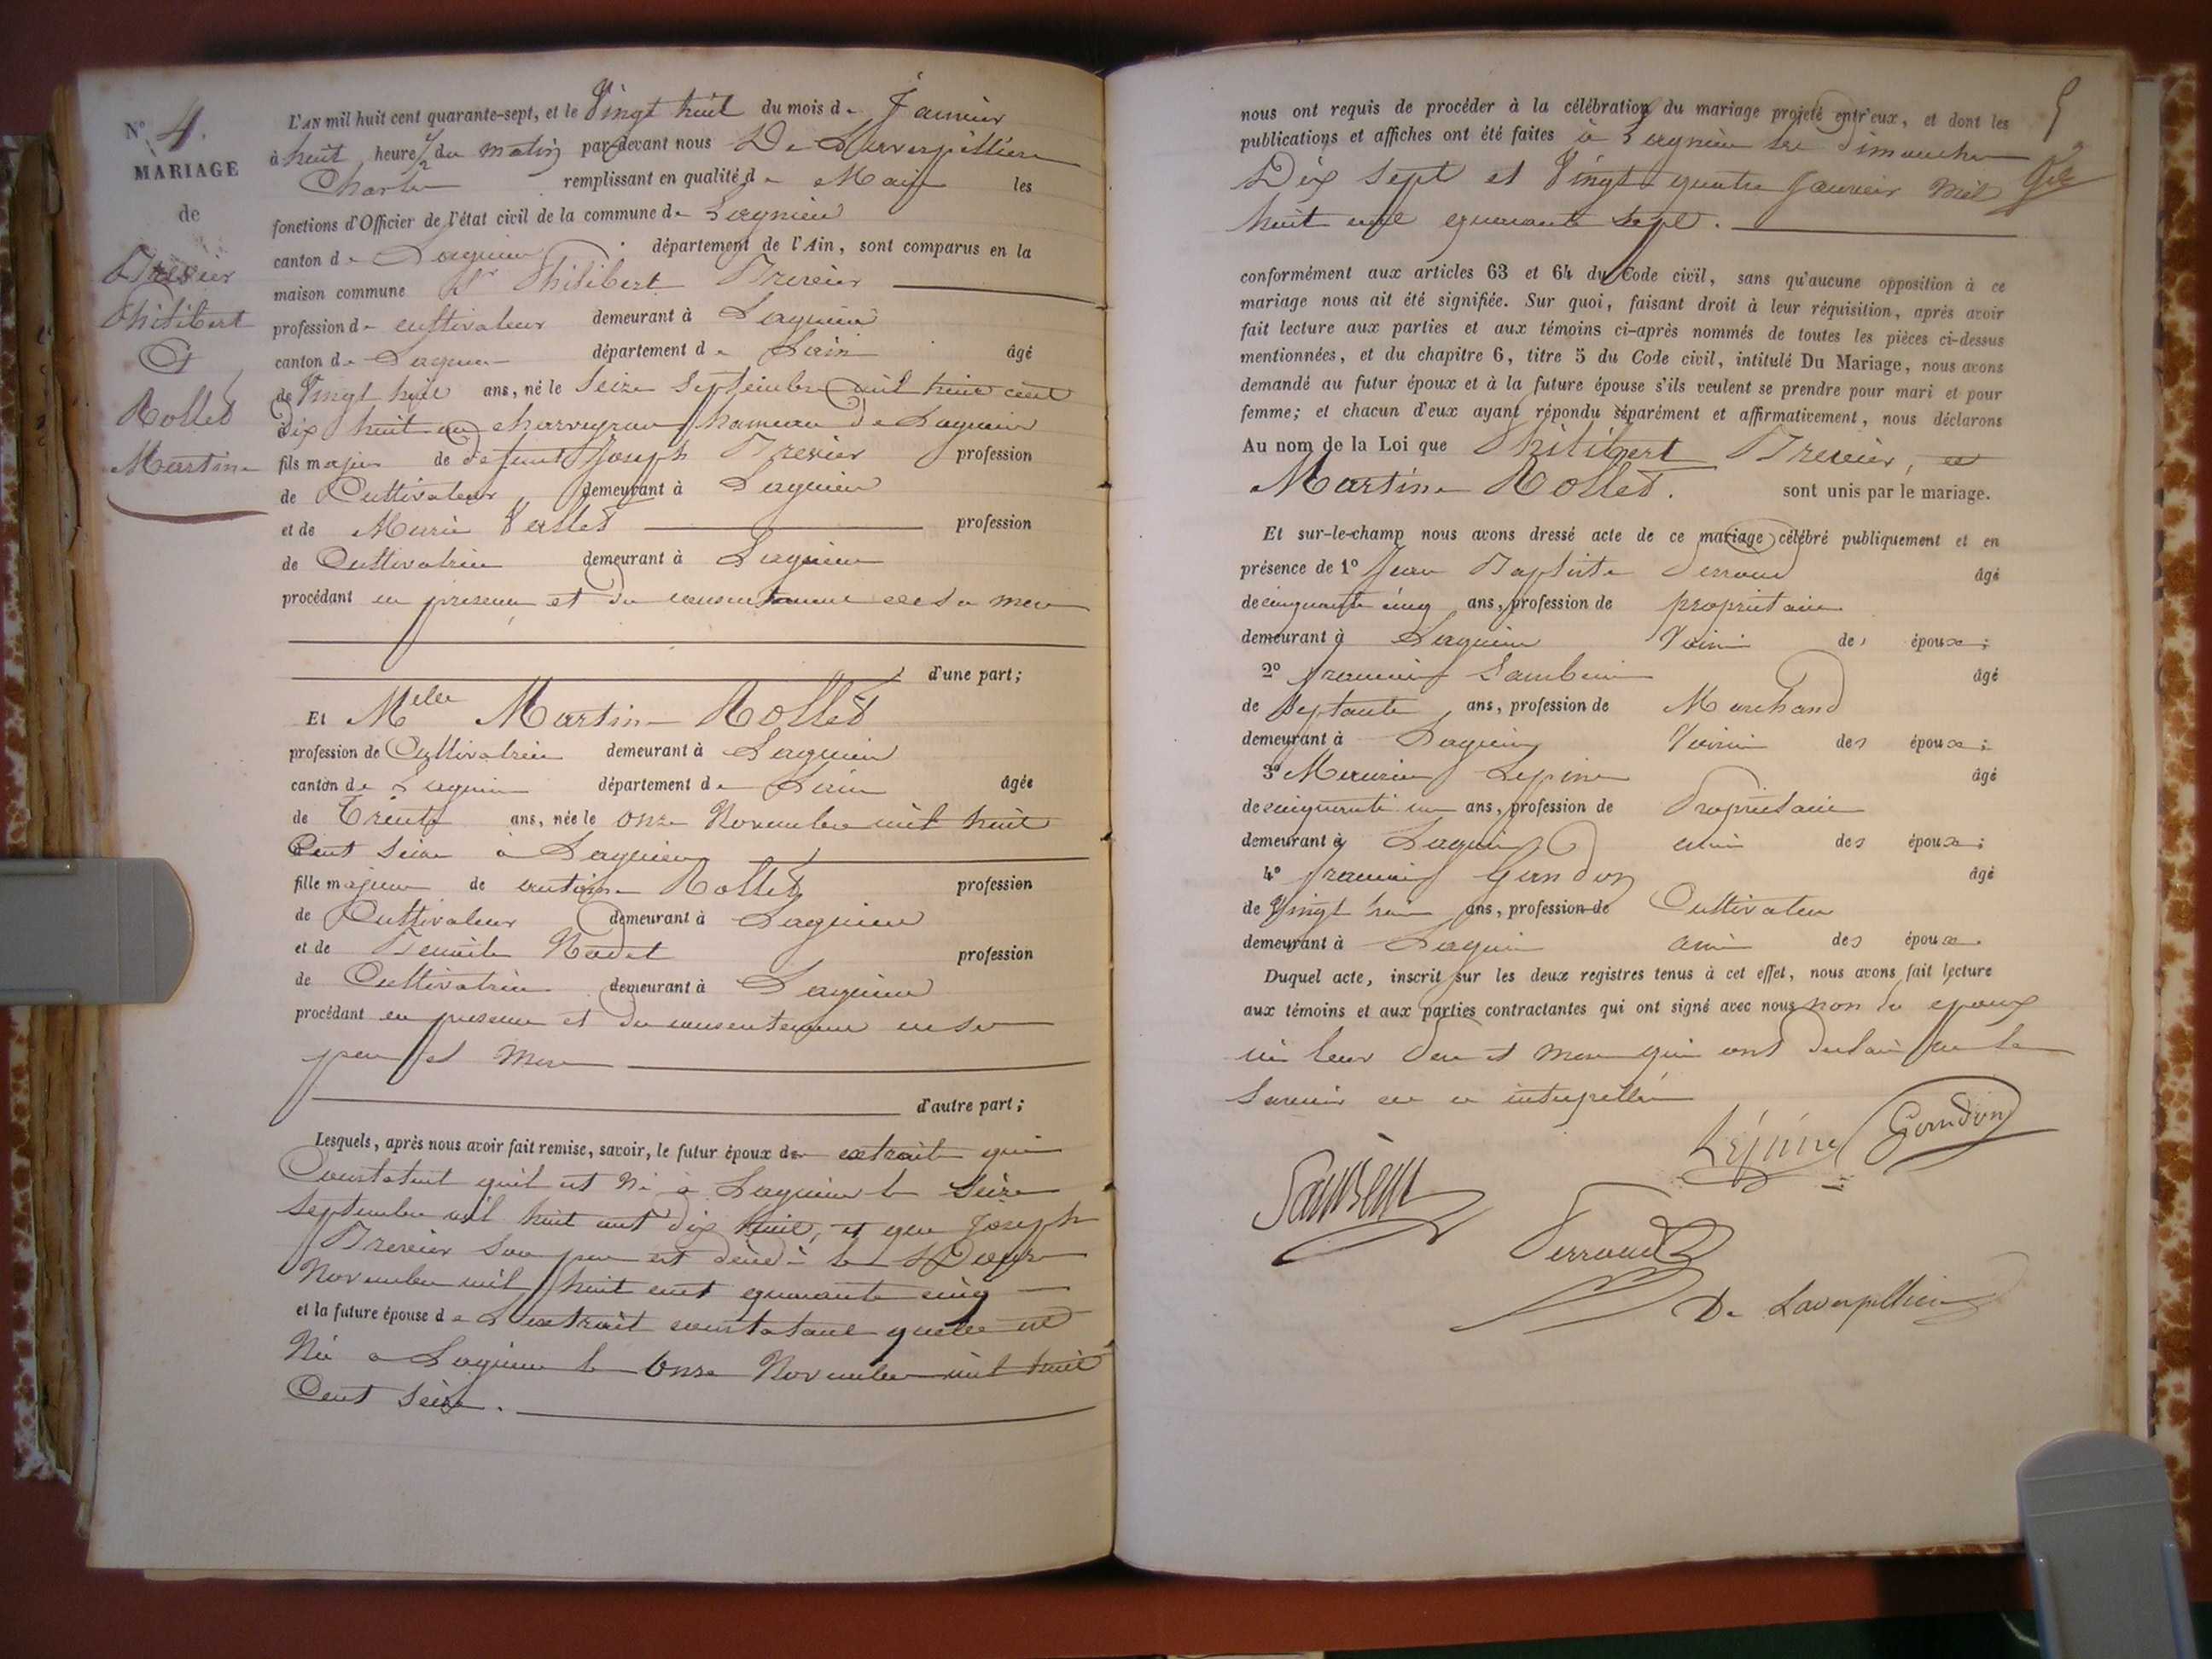 N° 4.
MARIAGE
de
Trevier
Philibert
Et
Rollet
Martine
L'AN mil huit cent quarante-sept, et le Vingt huit du mois de Janvier
à huit heure 1/2 du matin par-devant nous De Laverpillière
Charles remplissant en qualité de Maire les
fonctions d'Officier de l'état civil de la commune de Lagnieu
canton de Lagnieu département de l'Ain, sont comparus en la
maison commune Sr Philibert Trevier
profession de cultivateur demeurant à Lagnieu
canton de Lagnieu département de Lain âgé
de Vingt huit ans, né le Seize Septembre mil huit cent
dix huit au charveyron hameau de Lagnieu
fils majeur de defunt Joseph Trevier profession
de Cultivateur demeurant à Lagnieu
et de Marie Vallet profession
de Cultivatrice demeurant à Lagnieu
procédant en presence et du consentement de sa mere
d'une part;
Et Melle Martine Rollet
profession de Cultivatrice demeurant à Lagnieu
canton de Lagnieu département de Lain âgée
de Trente ans, née le onze Novembre mil huit
Cent Seize à Lagnieu
fille majeure de antoine Rollet profession
de Cultivateur demeurant à Lagnieu
et de Benoite Nadet profession
de Cultivatrice demeurant à Lagnieu
procédant en presence et du consentement de ses
pere et mere
d'autre part;
Lesquels, après nous avoir fait remise, savoir, le futur époux de extraits qui
Constatent quil est Né à Lagnieu le Seize
septembre mil huit cent dix huit, et que Joseph
Trevier son pere est décédé le Douze
Novembre mil huit cent quarante cinq
et la future épouse de Lextrait constatant quelle est
Née a Lagnieu le Onze Novembre mil huit
Cent Seize.
5
nous ont requis de procéder à la célébration du mariage projeté entr'eux, et dont les
publications et affiches ont été faites à Lagnieu les Dimanches
Dix Sept et Vingt quatre Janvier Mil
huit cent quarante Sept.
conformément aux articles 63 et 64 du Code civil, sans qu'aucune opposition à ce
mariage nous ait été signifiée. Sur quoi, faisant droit à leur réquisition, après avoir
fait lecture aux parties et aux témoins ci-après nommés de toutes les pièces ci-dessus
mentionnées, et du chapitre 6, titre 5 du Code civil, intitulé Du Mariage, nous avons
demandé au futur époux et à la future épouse s'ils veulent se prendre pour mari et pour
femme; et chacun d'eux ayant répondu séparément et affirmativement, nous déclarons
Au nom de la Loi que Philibert Trevier, et
Martine Rollet. sont unis par le mariage.
Et sur-le-champ nous avons dressé acte de ce mariage célébré publiquement et en
présence de 1° Jean Baptiste Perroud âgé
de cinquante cinq ans, profession de propriétaire
demeurant à Lagnieu Voisin des époux;
2° francois Sambuin âgé
de Septante ans, profession de Marchand
demeurant à Lagnieu Voisin des époux;
3° Maurice Lepine âgé
de cinquante un ans, profession de Propriétaire
demeurant à Lagnieu ami des époux;
4° francois Gandon âgé
de Vingt huit ans, profession de Cultivateur
demeurant à Lagnieu ami des époux.
Duquel acte, inscrit sur les deux registres tenus à cet effet, nous avons fait lecture
aux témoins et aux parties contractantes qui ont signé avec nous non les epoux
ni leur Pere et mere qui ont declaré ne le
Savoir de ce interpellés
Lépine Gandon
Perroud
De Laverpillière